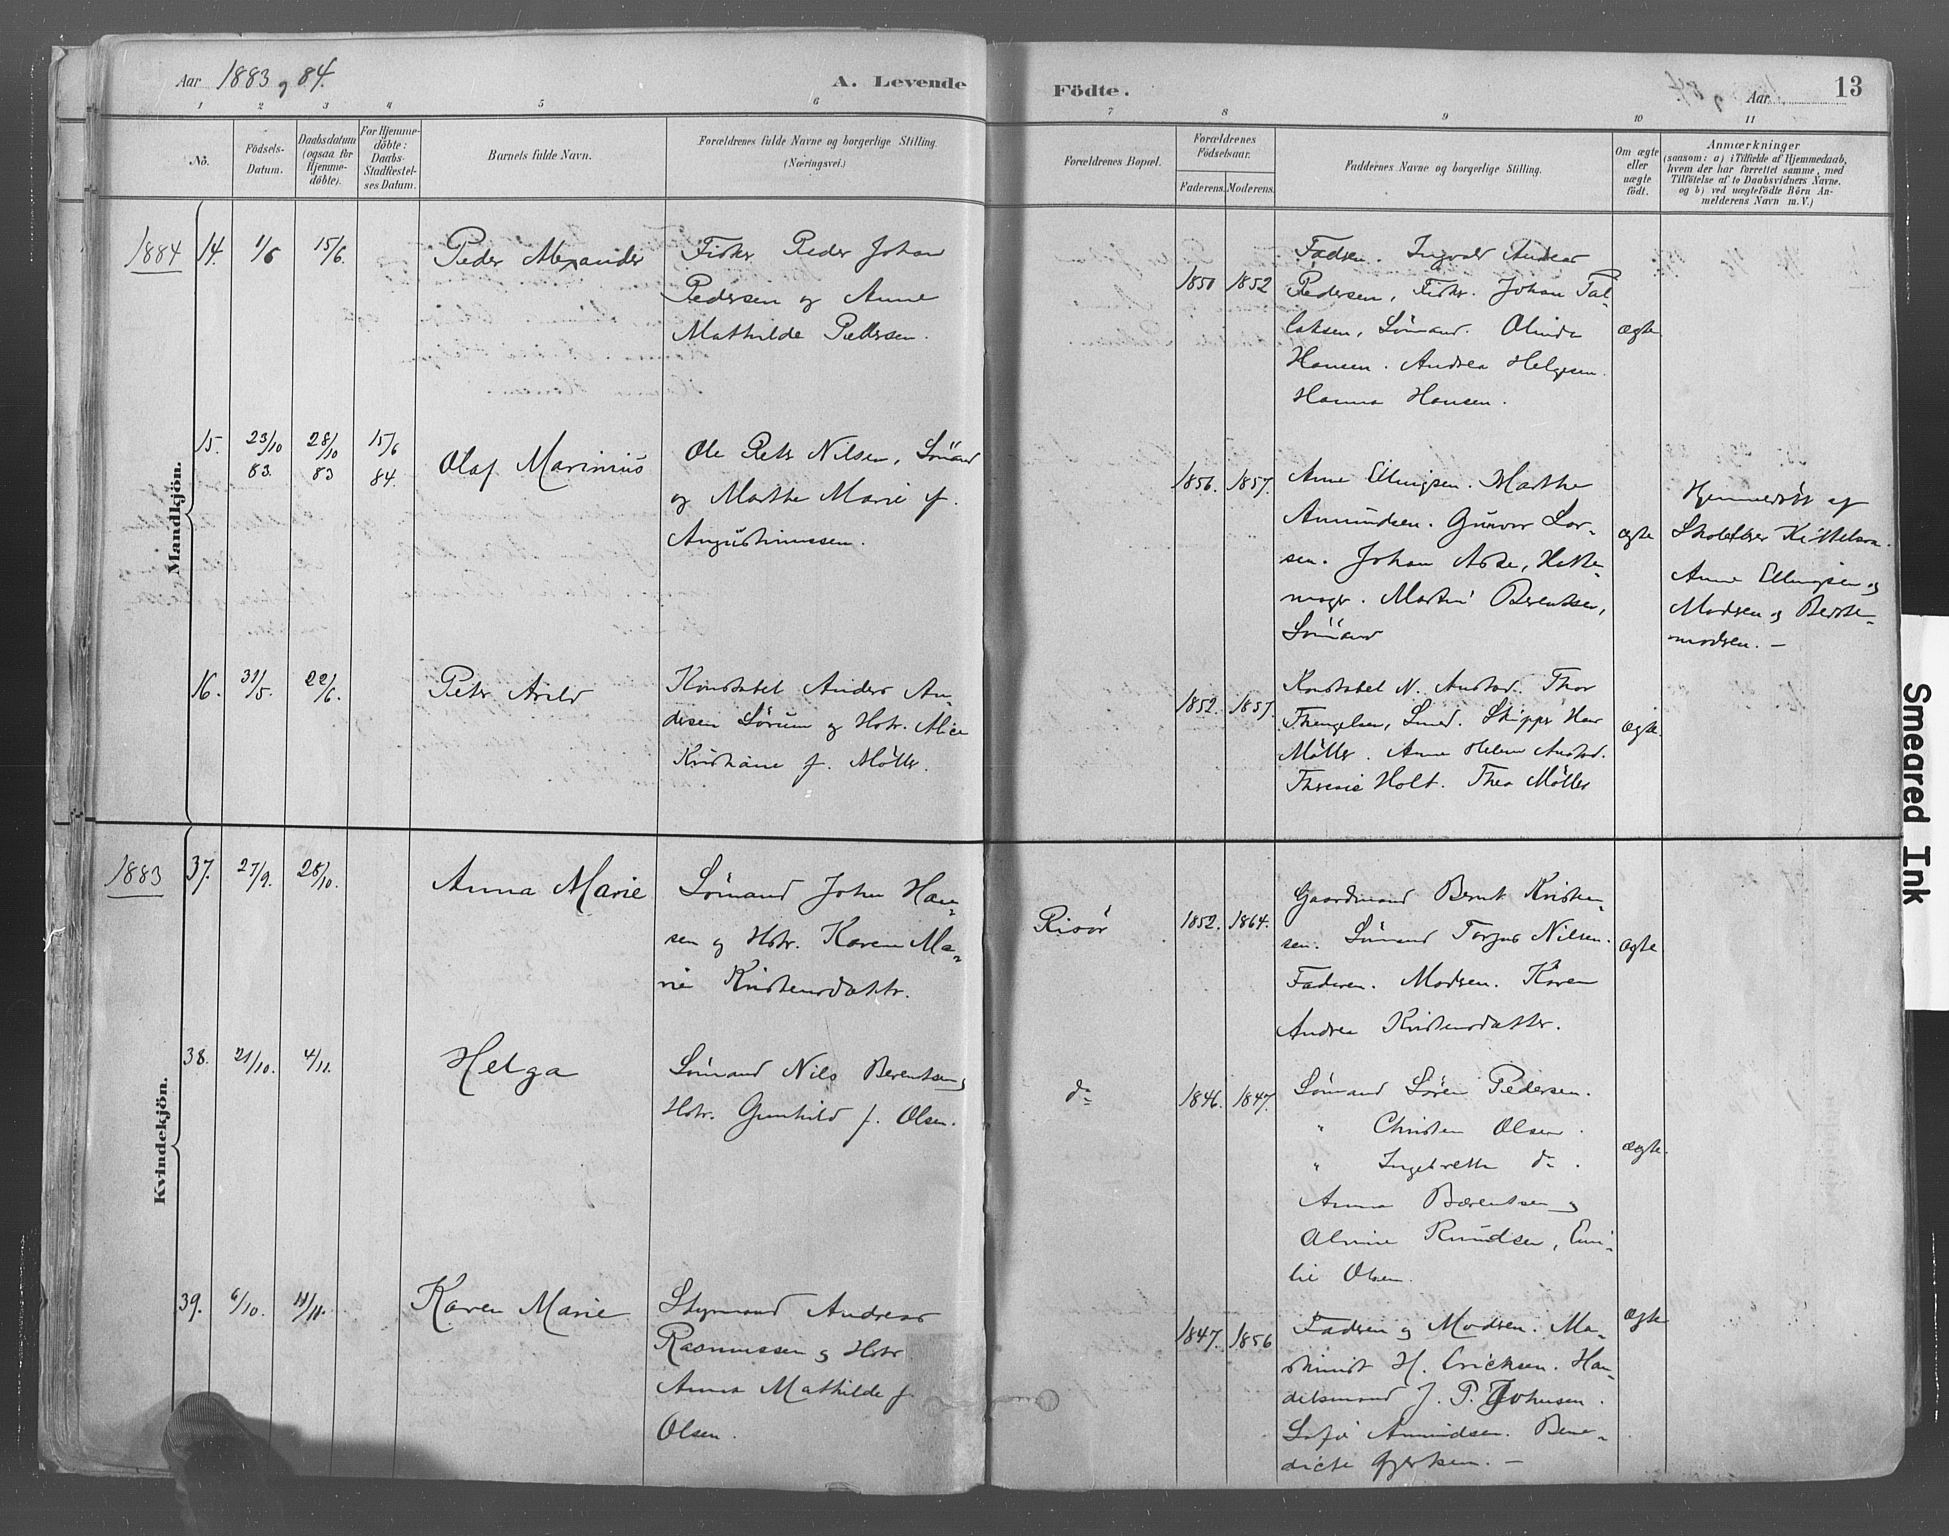 Aar 1883 og 84.
A. Levende
Födte.
Aar
13
1 2 3 4 5 6 7 8 9 10 11
No.
Födsels-
Datum.
Daabsdatum
(ogsaa for
Hjemme-
döbte).
For Hjemme-
döbte:
Daabs-
Stadfæstel-
ses Datum.
Barnets fulde Navn.
Forældrenes fulde Navne og borgerlige Stilling.
(Næringsvei.)
Forældrenes Bopæl.
Forældrenes
Födselsaar.
Faderens. Moderens.
Faddernes Navne og borgerlige Stilling.
Om ægte
eller
uægte
födt.
Anmærkninger
(saasom: a) i Tilfælde af Hjemmedaab,
hvem der har forrettet samme, med
Tilföielse af to Daabsvidners Navne.
og b) ved uægtefödte Börn An-
melderens Navn m. V.)
Mandkjön.
1884 14. 1/6 15/6.
Peder Alexander
Fisker Peder Johan
Pedersen og Anne
Mathilde Pedersen.
1850 1852
Faderen. Ingvald Andreas
Pedersen, Fisker. Johan Tal-
laksen, Sömand. Olinda
Hansen. Andrea Helgesen.
Hanna Hansen.
ægte
15. 23/10 83. 28/10 83 15/6 84.
Olaf Marinius
Ole Peter Nilsen, Sömand
og Marthe Marie f.
Augustinussen.
1856. 1857.
Anne Ellingsen. Marthe
Amundsen. Gunvor Lar-
sen. Johan Aase, Hatte-
mager. Martin Berentsen,
Sömand
ægte
Hjemmedöbt af
Skolelærer Kittelsen.
Anne Ellingsen og
Moderen og Bedste-
moderen. –
16. 31/5. 22/6.
Peter Arild
Konstabel Anders An-
dersen Sörum og Hstr. Alice
Kristiane f. Möller.
1852. 1857.
Konstabel N. Austad. Thor
Thengelsen, Smed. Skipper Hans
Möller. Anne Helene Austad.
Theresie Holt. Thea Möller
ægte.
Kvindekjön.
1883 37. 27/9. 28/10.
Anna Marie
Sömand John Han-
sen og Hstr. Karen Ma-
rie Kristensdatter.
Risör
1852. 1864.
Gaardmand Bernt Kristen-
sen. Sömand Torjus Nilsen.
Faderen. Moderen. Karen
Andrea Kristensdatter.
ægte
38. 21/10. 4/11.
Helga
Sömand Nils Berentsen og
Hstr. Gunhild f. Olsen.
do
1846. 1847.
Sömand Sören Pedersen.
" Christen Olsen.
" Ingebrette do.
Anna Bærentsen og
Alvine Knudsen, Emi-
lie Olsen.
ægte.
39. 6/10. 11/11.
Karen Marie
Styrmand Andreas
Rasmussen og Hstr.
Anna Mathilde f.
Olsen.
1847. 1856
Faderen og Moderen. Ma-
skinist H. Ericksen. Han-
delsmand J. P. Johnsen.
Sofie Amundsen. Bene-
dicte Gjertsen. –
ægte
Smeared Ink